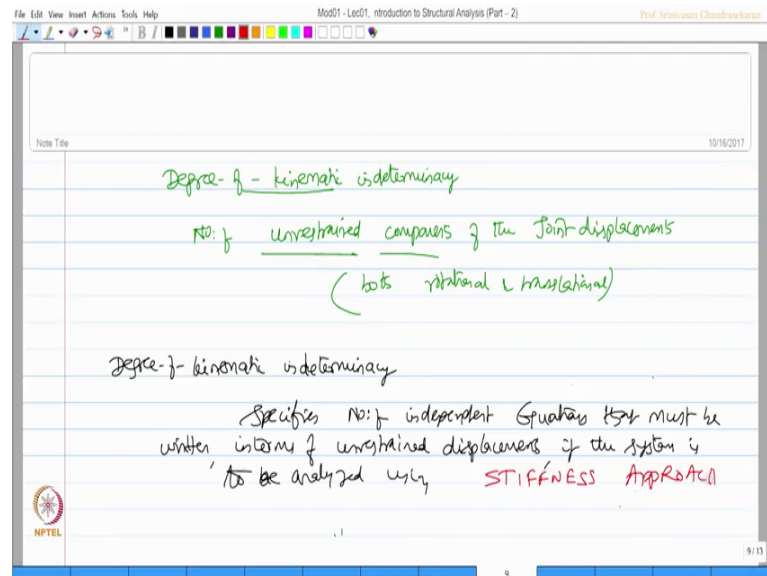 File Edit View Insert Actions Tools Help
Mod01 - Lec01, ntroduction to Structural Analysis (Part – 2)
Prof. Srinivasan Chandrasekaran
B I
Note Title
10/16/2017
Degree-of-kinematic indeterminacy
No: of unrestrained components of the Joint displacements
(both rotational & translational)
Degree-of-kinematic indeterminacy
Specifies No: of independent Equations that must be
written interms of unrestrained displacements, if the system is
to be analyzed using STIFFNESS APPROACH
NPTEL
9 / 13
9